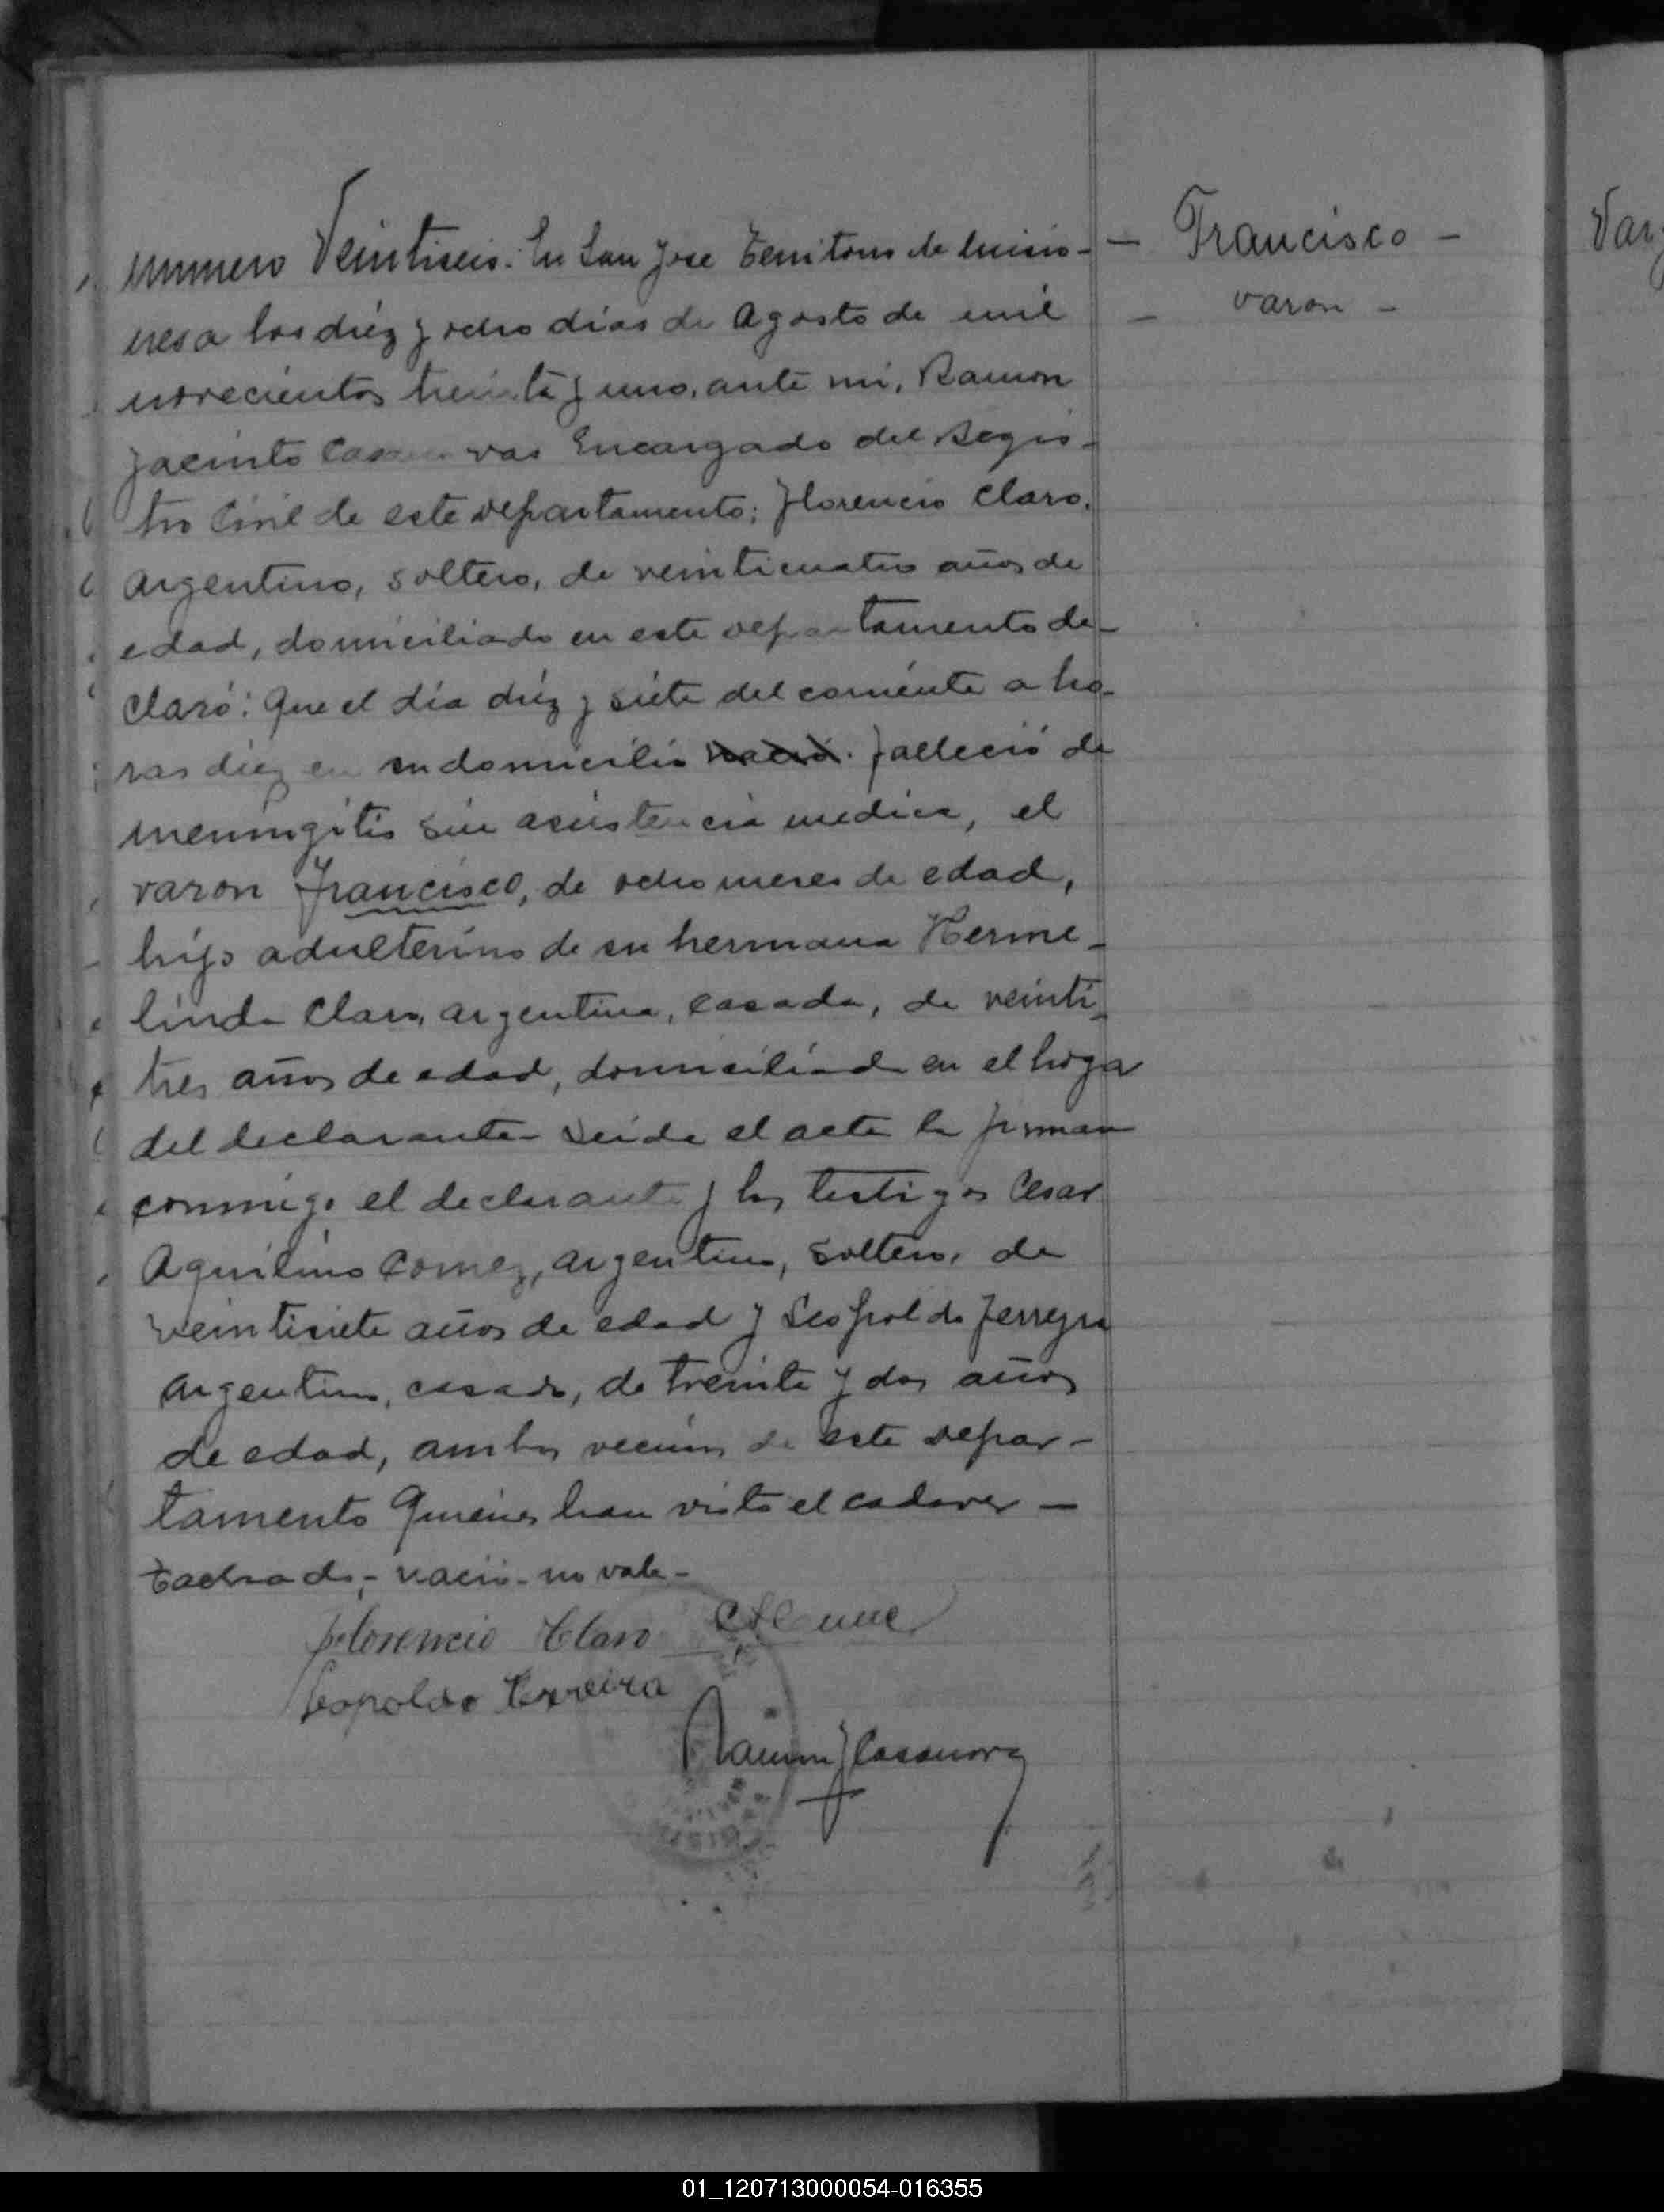 numero Veintiseis. En San Jose Territorio de Misio-
nes a los diéz y ocho días de Agosto de mil
novecientos treinta y uno, ante mi, Ramon
Jacinto Encargado del Regis-
tro Civil de este departamento; Florencio Claro,
argentino, soltero, de veinticuatro años de
edad, domiciliado en este departamento de-
claró: Que el día diéz y siete del corriente a ho-
ras diez en su domicilio nació. falleció de
meningitis sin asistencia medica, el
varon Francisco, de ocho meses de edad,
hijo adulterino de su hermana Herme-
linda Claro, argentina, casada, de veinti-
tres años de edad, domiciliada en el hogar
del declarante - Leida el acta la firman
conmigo el declarante y los testigos Cesar
Aquilino Gomez, argentino, soltero, de
veintisiete años de edad y Leopoldo Ferreyra
argentino, casado, de treinta y dos años
de edad, ambos vecinos de este depar-
tamento Quienes han visto el cadaver -
Tachado, - nació - no vale -
Florencio Claro
Leopoldo Ferreira
Ramon J Casanova
- Francisco -
- varon -
Var
01_120713000054-016355